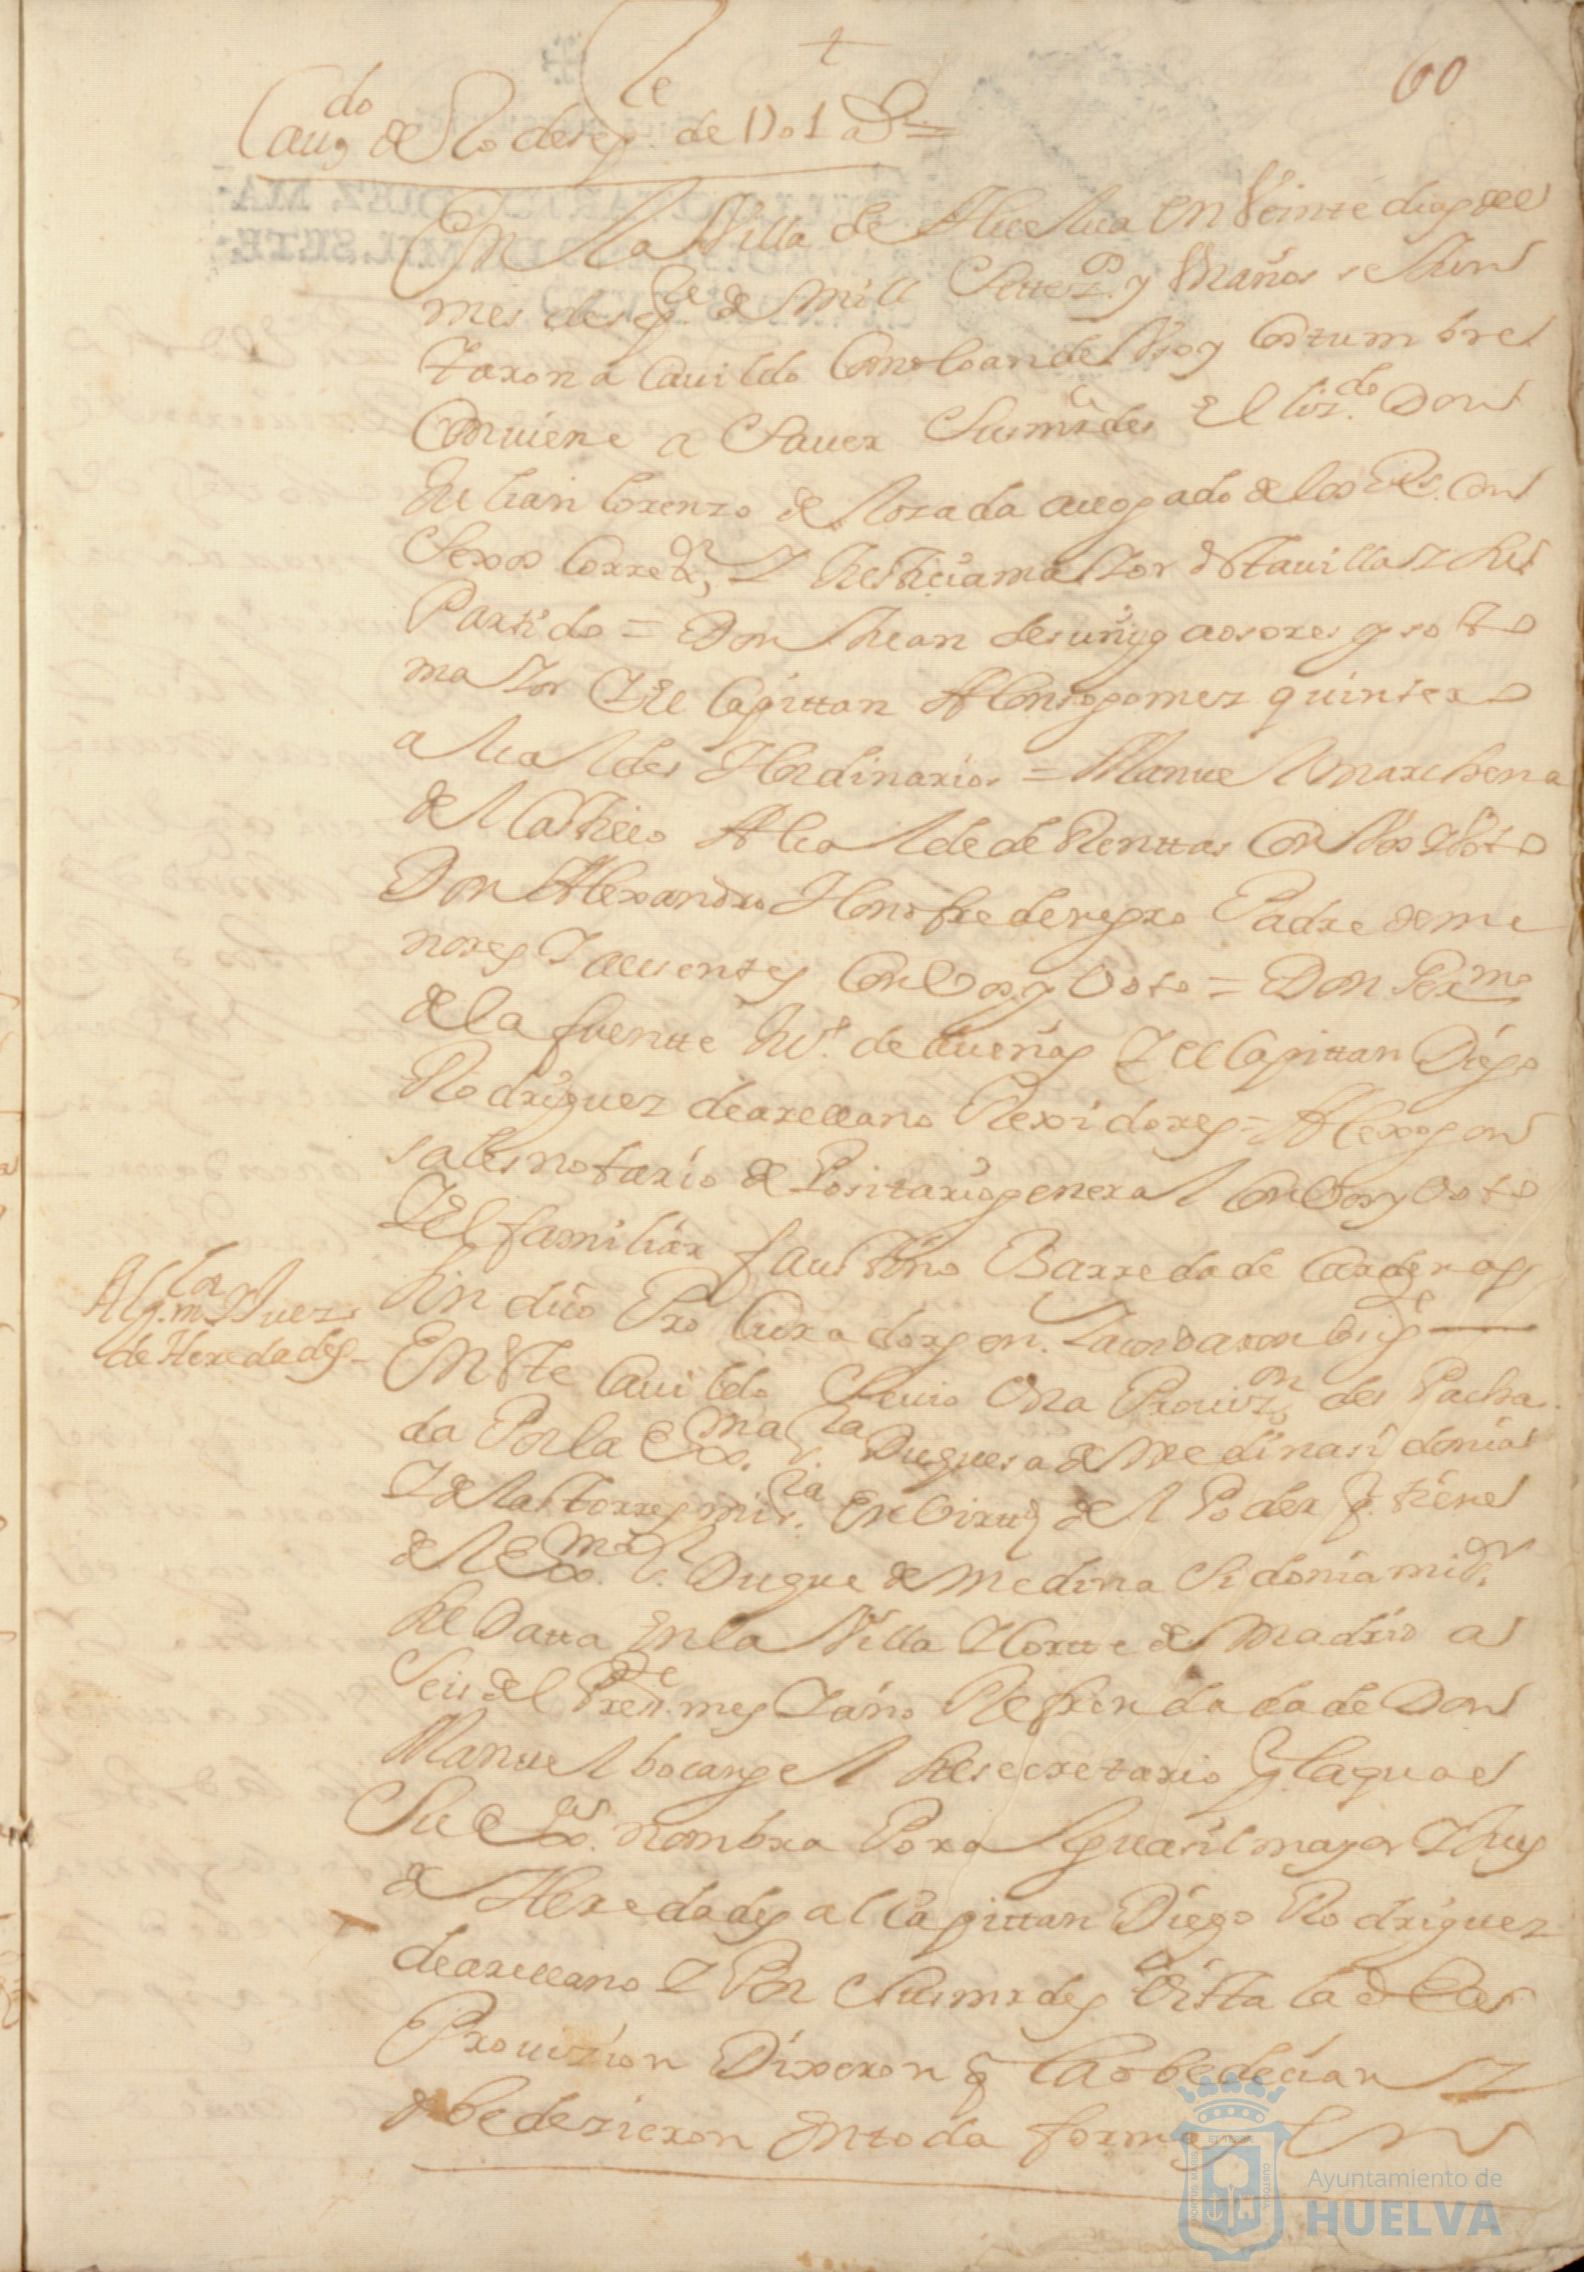 60
Cauᵈᵒ de 20 de sepᵗᵉ de 1701 aˢ =
En la Villa de Huelua en Veinte dias del
mes de sepᵗᵉ de mill settezᵒˢ y Vn años se Jun
taron a Cauildo Como lo an de Vso y Costumbre
Conuiene a Sauer Susmrᶜᵉdes El lizᵈᵒ Don
Julian lorenzo de Lozada auogado de los Rˡᵉˢ Con
sexos Correxᵒʳ, Y Justicia maior de sta uilla y su
Partido = Don Juan de suñiga osores y soto
maior Y El Capittan Alonso gomez quintero
alcaldes Hordinarios = Manuel marchena
del Castillo Alcalde de Renttas Con Vos y Voto
Don Alexandro Honofre de negro Padre de me
nores Y ausentes Con Vos y Voto = Don Gerᵐᵒ
de la fuentte de dueñas Y el Capittan Diego
Rodriguez de arellano Rexidores = Alexo gon
sales notario depositario general Con Vos y Voto
Y El familiar faustino Barreda de Cardenas
sindico Procurador gen. Y acordaron lo sigᵗᵉ
Algˡ mᵒʳ y Juez
de Heredades
En este Cauildo se uio Vna Prouizᵒⁿ des Pacha
da Por la Exᵐᵃ sʳᵃ Duquesa de Medinasidonia
Y de las torres mi sʳᵃ En Virttᵈ del Poder q. tiene
del Exᵐᵒ sʳ Duque de Medina Sidonia mi sʳ
su Datta En la Villa Y Cortte de Madrid a
seis del Presᵗᵉ mes Y año Refrendada de Don
Manuel bocangel su secretario Por la qual
Su Exᵃ nombra Por Alguasil mayor Y Jues
de Heredades al Capittan Diego Rodriguez
de arellano Y Por Susmrdes Vista la dha
Prouizion Dixeron q la obedecian Y
obedezieron En toda forma Y En
Ayuntamiento de
HUELVA